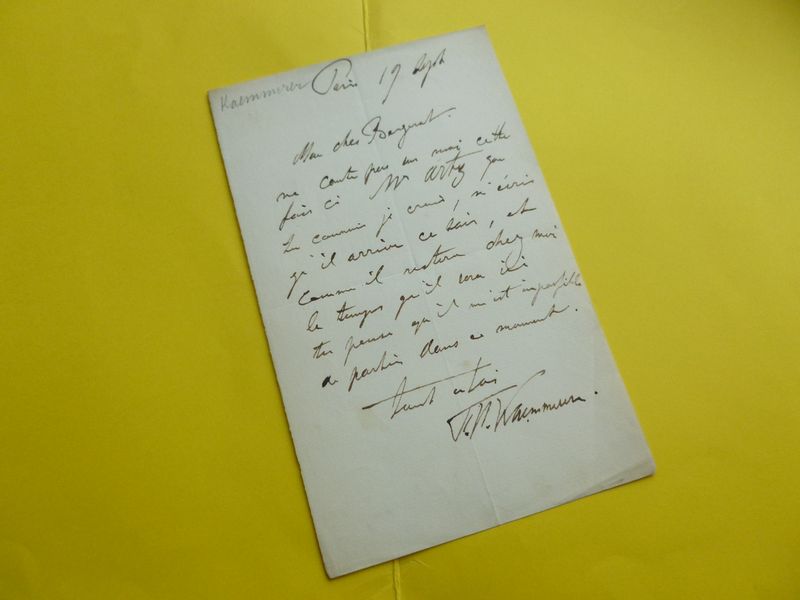 Kaemmerer Paris 19 Sept
Mon cher Bergerat.
ne compte pas sur moi cette
fois ci Mr que
tu connais je crois, m'écris
qu'il arrive ce soir, et
comme il restera chez moi
le temps qu'il sera ici
tu pense qu'il m'est impossible
de partir dans ce moment.
tout à toi
F. H. Kaemmerer.